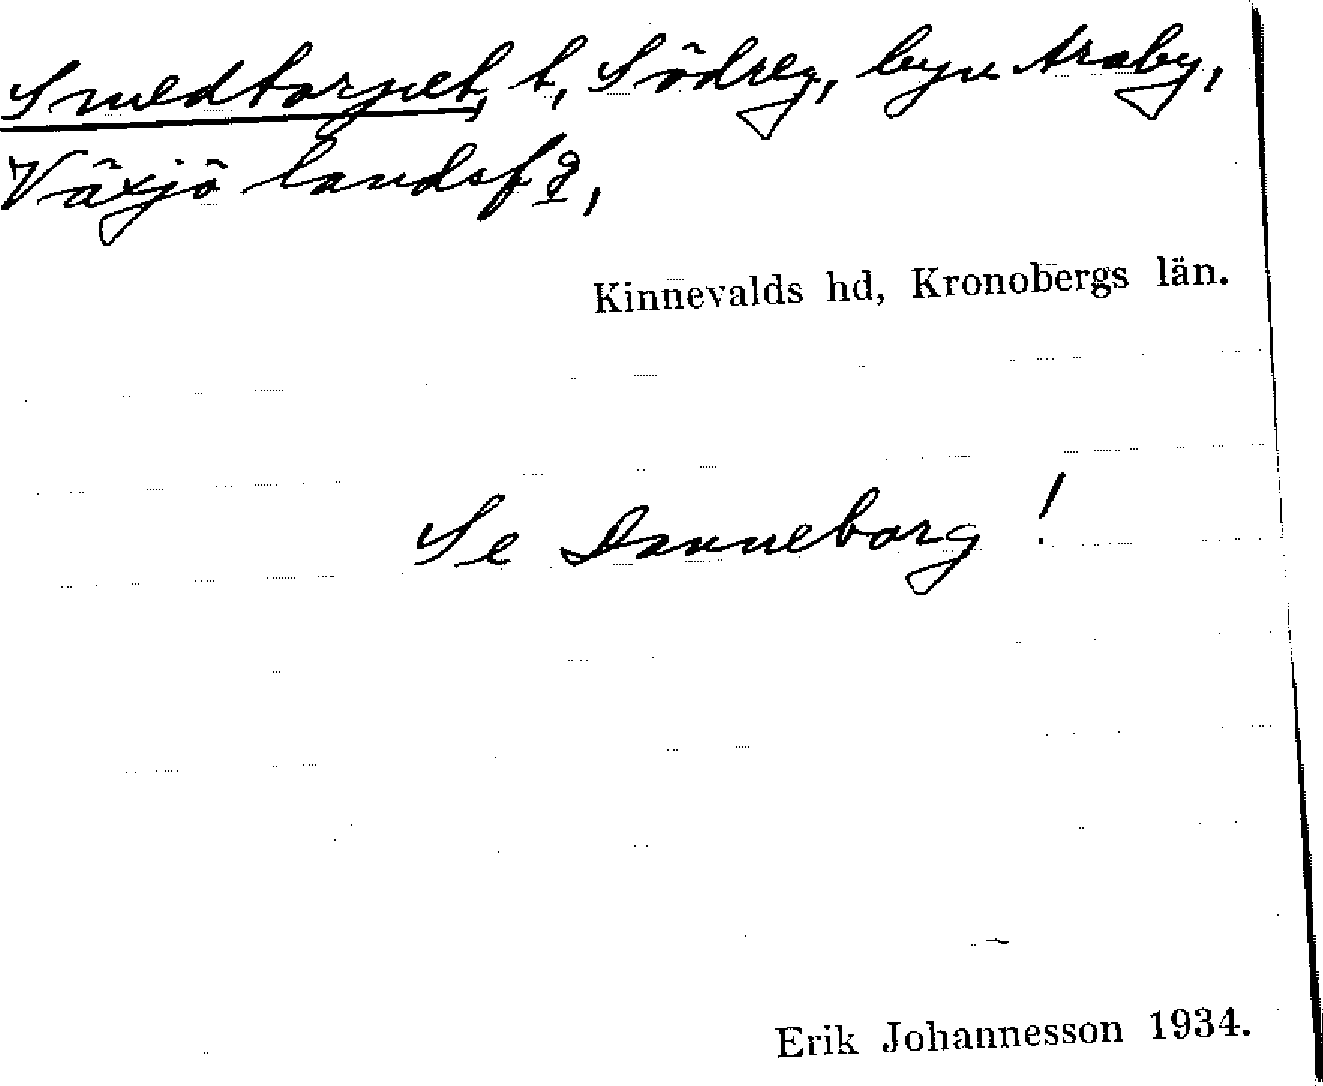 Smedtorpet, t, Södreg, byn Araby,
Växjö landsf g,
Kinnevalds hd, Kronobergs län.
Se Danneborg !
Erik Johannesson 1934.